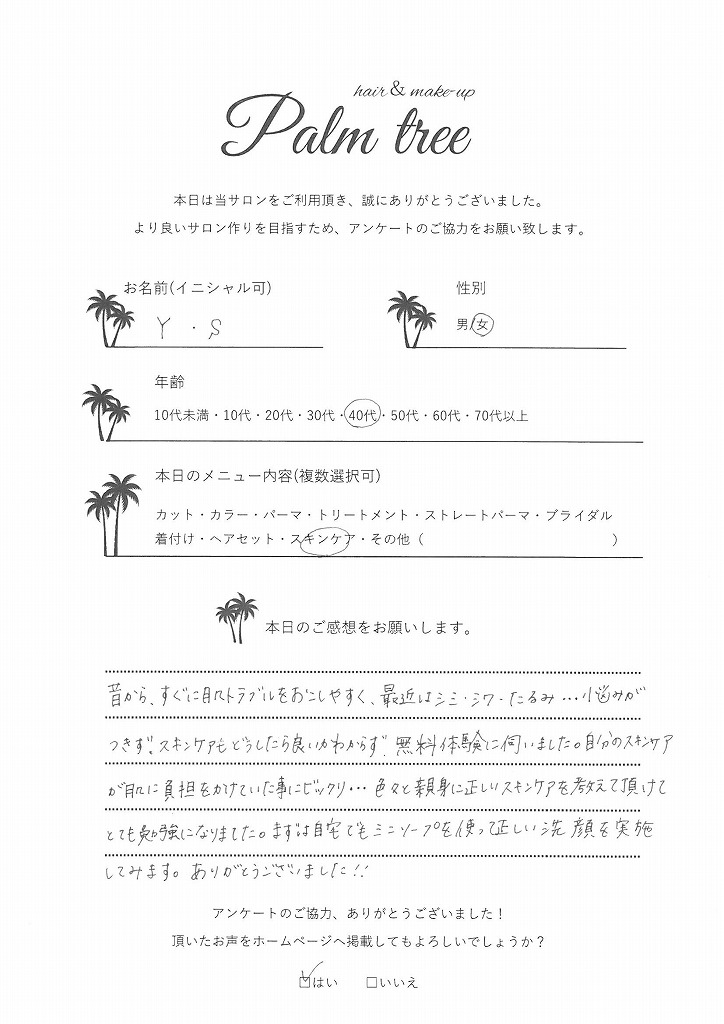 hair & make-up
Palm tree
本日は当サロンをご利用頂き、誠にありがとうございました。
より良いサロン作りを目指すため、アンケートのご協力をお願い致します。
お名前(イニシャル可)
Y・S
性別
男/女
年齢
10代未満・10代・20代・30代・40代・50代・60代・70代以上
本日のメニュー内容(複数選択可)
カット・カラー・パーマ・トリートメント・ストレートパーマ・ブライダル
着付け・ヘアセット・スキンケア・その他（ ）
本日のご感想をお願いします。
昔から、すぐに肌トラブルをおこしやすく、最近はシミ・シワ・たるみ…悩みが
つきず!スキンケアもどうしたら良いかわからず!無料体験に伺いました。自分のスキンケア
が肌に負担をかけていた事にビックリ…色々と親身に正しいスキンケアを教えて頂けて
とても勉強になりました。まずは自宅でもミニソープを使って正しい洗顔を実施
してみます。ありがとうございました!!
アンケートのご協力、ありがとうございました！
頂いたお声をホームページへ掲載してもよろしいでしょうか？
☑はい □いいえ